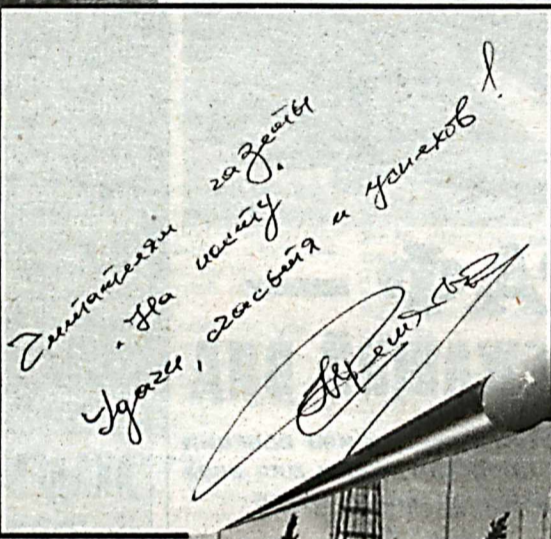 Читателям газеты
"На посту".
Удачи, счастья и успехов!